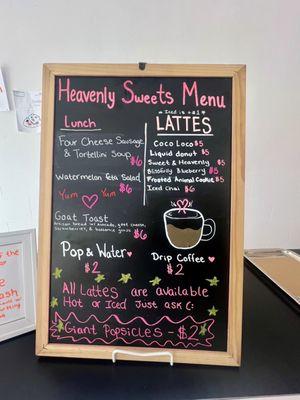 Heavenly Sweets Menu
Lunch
Four Cheese Sausage
& Tortellini Soup $6
Watermelon Feta Salad
$6
Yum Yum
Goat Toast
Artisan bread w/ avocado, goat cheese,
strawberries, & balsamic glaze
$6
Pop & Water
$2
Iced is +$1
LATTES
Coco Loco $5
Liquid donut $5
Sweet & Heavenly $5
Blissfully Blueberry $5
Frosted Animal Cookie $5
Iced Chai $6
Drip Coffee
$2
All Lattes are available
Hot or Iced Just ask (:
Giant Popsicles - $2